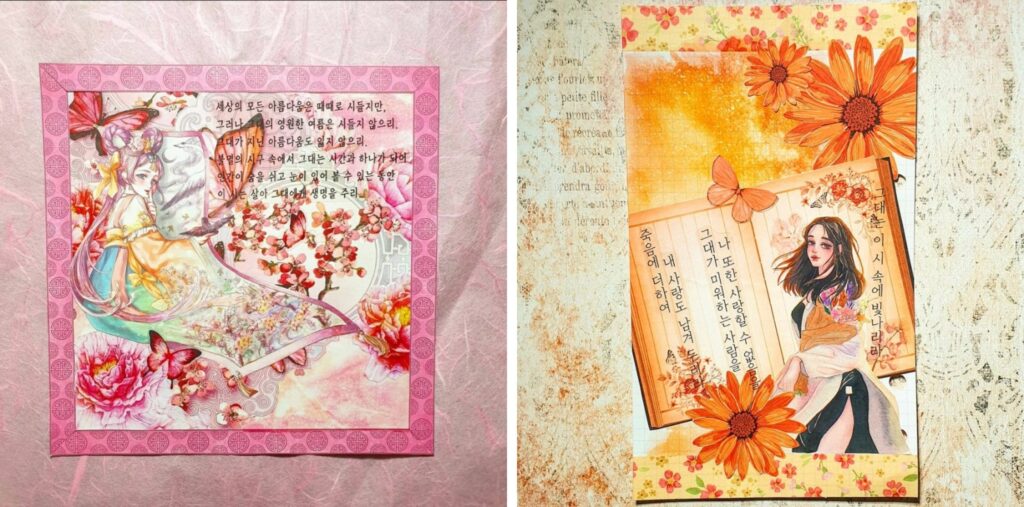 세상의 모든 아름다움은 때때로 시들지만,
그러나 그대의 영원한 여름은 시들지 않으리.
그대가 지닌 아름다움도 잃지 않으리.
불멸의 시구 속에서 그대는 시간과 하나가 되어
인간이 숨을 쉬고 눈이 있어 볼 수 있는 동안
이 시는 살아 그대에게 생명을 주리.
petite fille
죽음에 더하여
내 사랑도 남겨
그대가 미워하는 사람을
나 또한 사랑할 수
그대는 이 시 속에 빛나리라